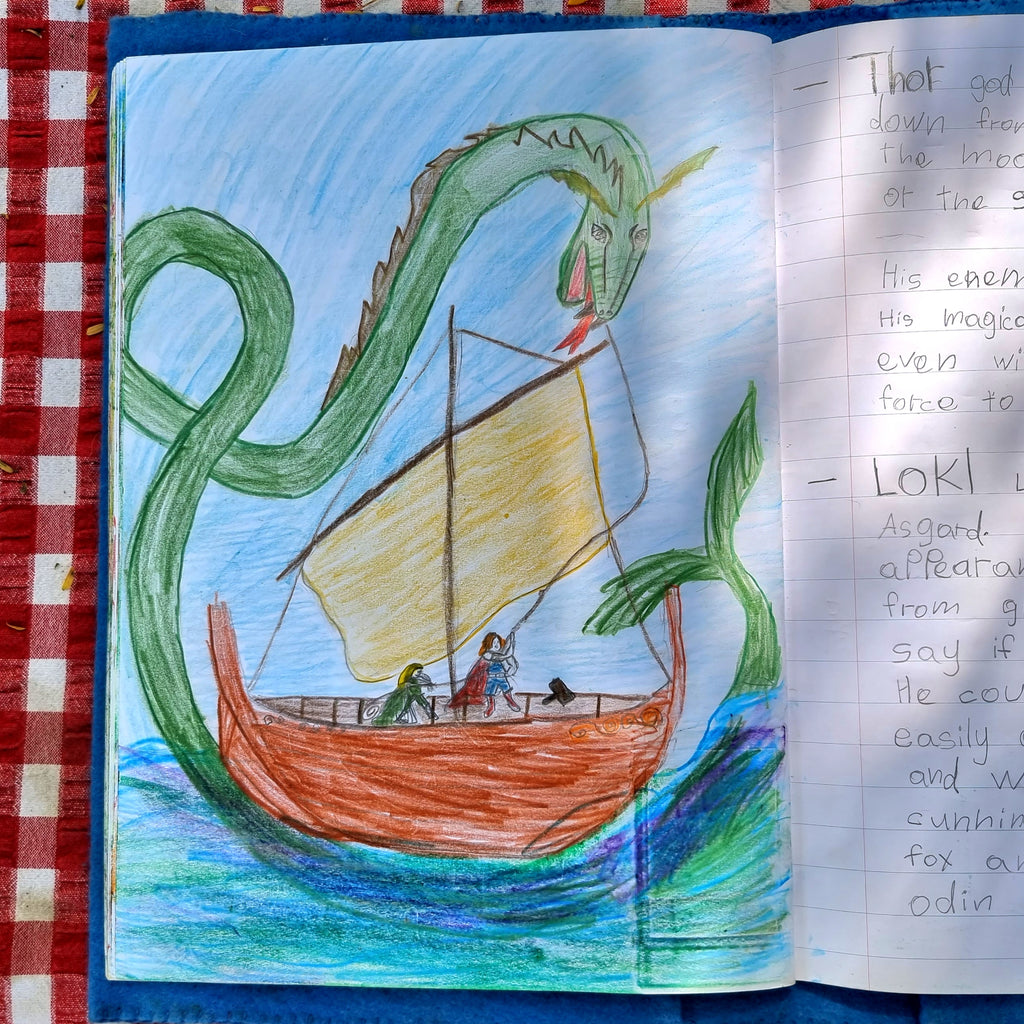 - Thor god
down from
the moo
of the g
His enem
His magica
even wi
force to
- LOKI L
Asgard.
appearan
from g
say if
He cou
easily
and w
cunnin
fox an
odin